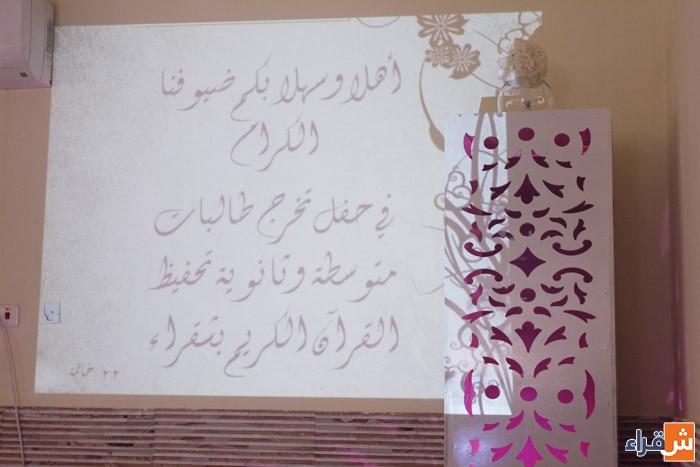 أهلا وسهلا بكم ضيوفنا
الكرام
في حفل تخرج طالبات
متوسطة وثانوية تحفيظ
القرآن الكريم بشقراء
٢٢ خاتمة
شقراء